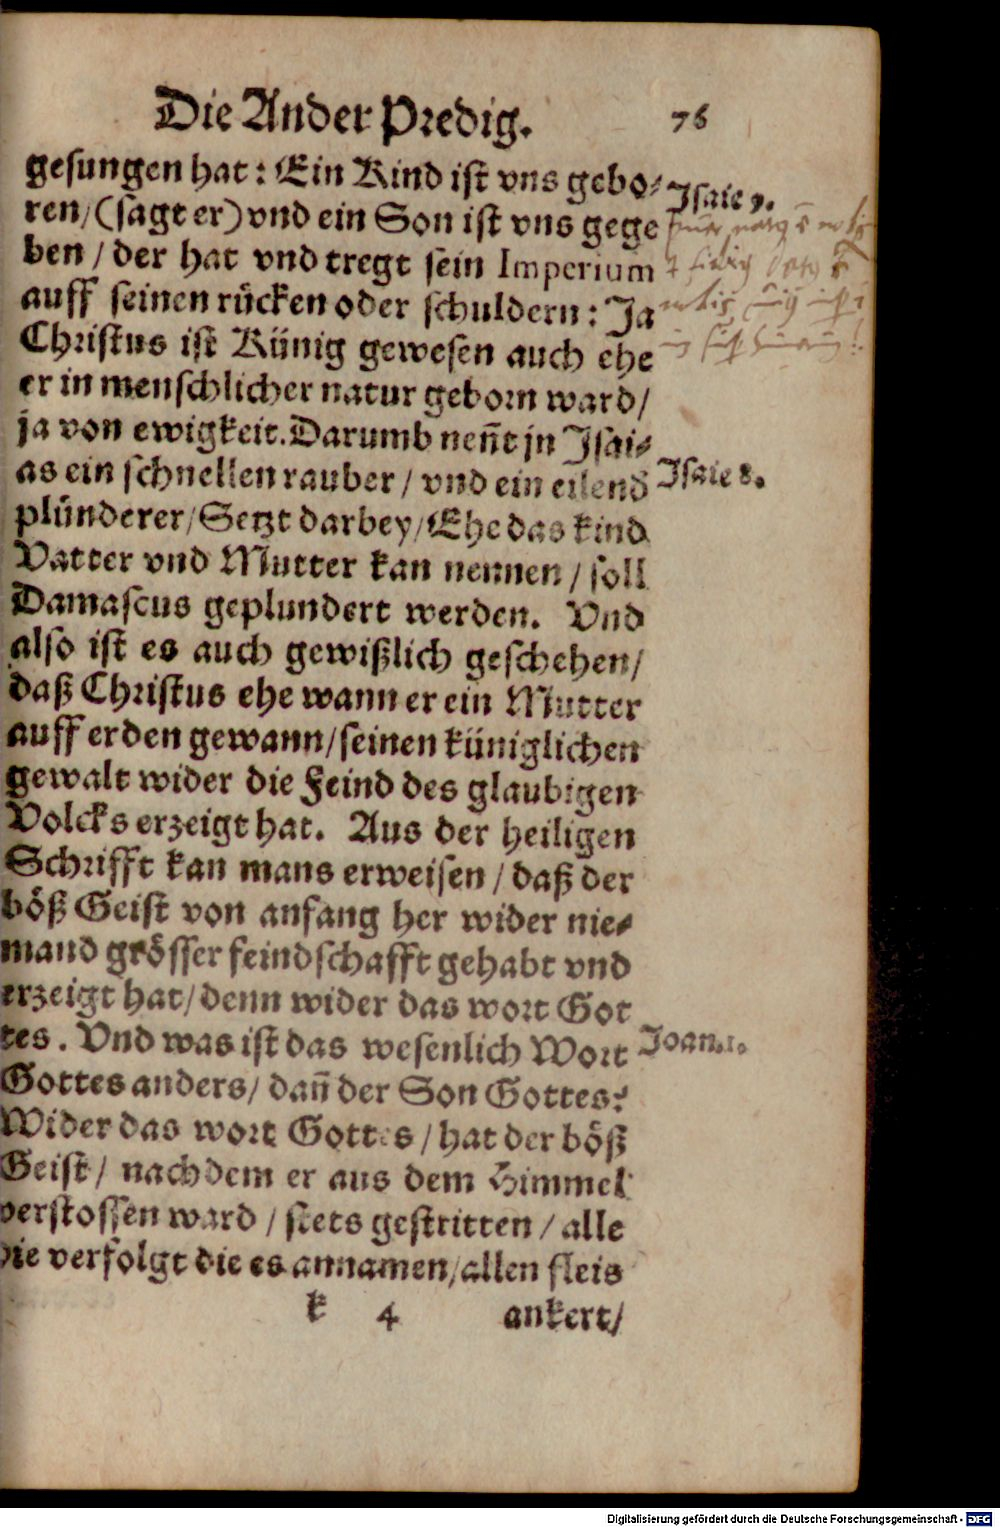 Die Ander Predig. 76
gesungen hat: Ein Kind ist vns gebo⸗ Isaie 9.
ren/(sagt er) vnd ein Son ist vns gege
ben / der hat vnd tregt sein Imperium
auff seinen rücken oder schuldern: Ja
Christus ist Künig gewesen auch ehe
er in menschlicher natur geborn ward/
ja von ewigkeit. Darumb neñt jn Isai⸗
as ein schnellen rauber / vnd ein eilend Isaie 8.
plünderer/Setzt darbey/Ehe das kind
Vatter vnd Mutter kan nennen / soll
Damascus geplundert werden. Vnd
also ist es auch gewißlich geschehen/
daß Christus ehe wann er ein Mutter
auff erden gewann/seinen küniglichen
gewalt wider die Feind des glaubigen
Volcks erzeigt hat. Aus der heiligen
Schrifft kan mans erweisen / daß der
böß Geist von anfang her wider nie⸗
mand grösser feindschafft gehabt vnd
erzeigt hat/ denn wider das wort Got
tes. Vnd was ist das wesenlich Wort Joan. 1.
Gottes anders/ dañ der Son Gottes?
Wider das wort Gottes / hat der böß
Geist/ nachdem er aus dem Himmel
verstossen ward / stets gestritten / alle
die verfolgt die es annamen/allen fleis
k 4 ankert/
Digitalisierung gefördert durch die Deutsche Forschungsgemeinschaft - DFG